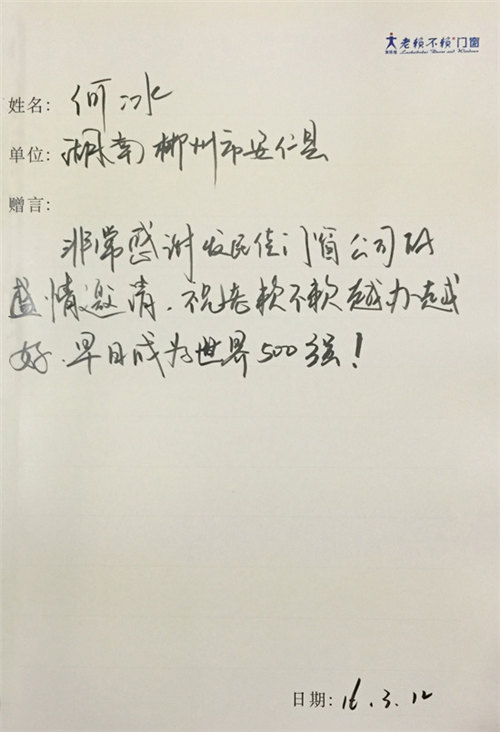 老赖不赖门窗
姓名: 何冰
单位: 湖南郴州市安仁县
赠言:
非常感谢发民佳门窗公司的
盛情邀请.祝老赖不赖越办越
好.早日成为世界500强!
日期: 16.3.12